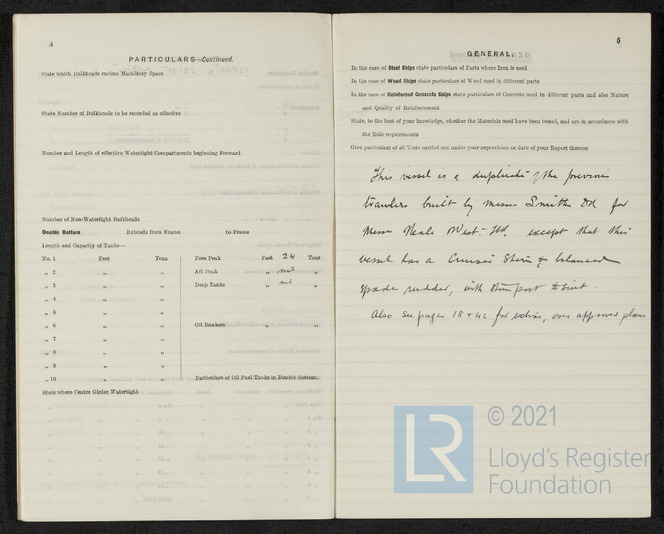 4
PARTICULARS—Continued.
State which Bulkheads enclose Machinery Space
State Number of Bulkheads to be recorded as effective
Number and Length of effective Watertight Compartments beginning Forward
Number of Non-Watertight Bulkheads
Double Bottom Extends from Frame to Frame
Length and Capacity of Tanks—
No. 1 Feet Tons Fore Peak Feet 24 Tons
„ 2 „ „ Aft Peak „ nil „
„ 3 „ „ Deep Tanks „ nil „
„ 4 „ „
„ 5 „ „
„ 6 „ „ Oil Bunkers „ „
„ 7 „ „
„ 8 „ „
„ 9 „ „
„ 10 „ „ Particulars of Oil Fuel Tanks in Double Bottom.
State where Centre Girder Watertight
5
GENERAL.
In the case of Steel Ships state particulars of Parts where Iron is used
In the case of Wood Ships state particulars of Wood used in different parts
In the case of Reinforced Concrete Ships state particulars of Concrete used in different parts and also Nature
and Quality of Reinforcement
State, to the best of your knowledge, whether the Materials used have been tested, and are in accordance with
the Rule requirements
Give particulars of all Tests carried out under your supervision or date of your Report thereon
This vessel is a duplicate of the previous
trawlers built by Messrs Smiths Dk for
Messrs Neale & West Ltd. except that this
vessel has a Cruiser Stern & balanced
spade rudder, with sternpost to suit.
Also see pages 18 + 42 for extras, over approved plans
LR © 2021
Lloyd's Register
Foundation